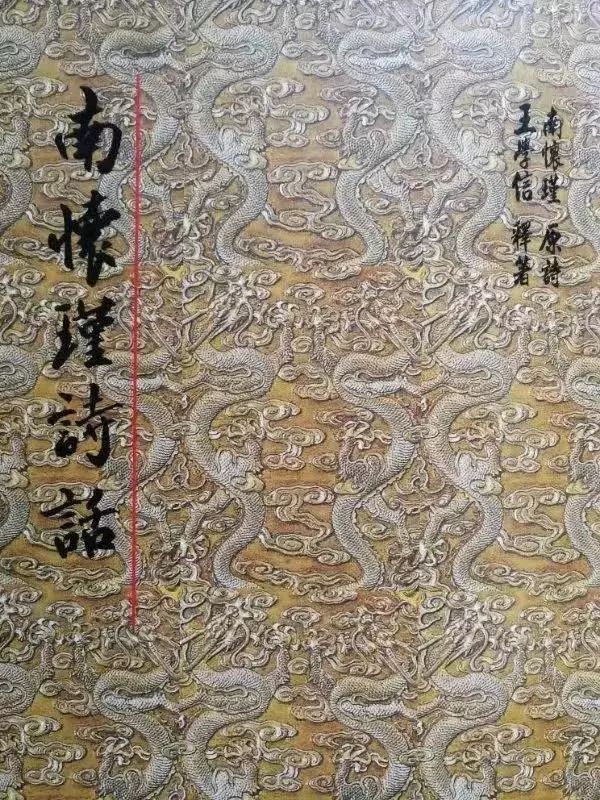 南懷瑾 原詩
王學信 釋著
南懷瑾詩話